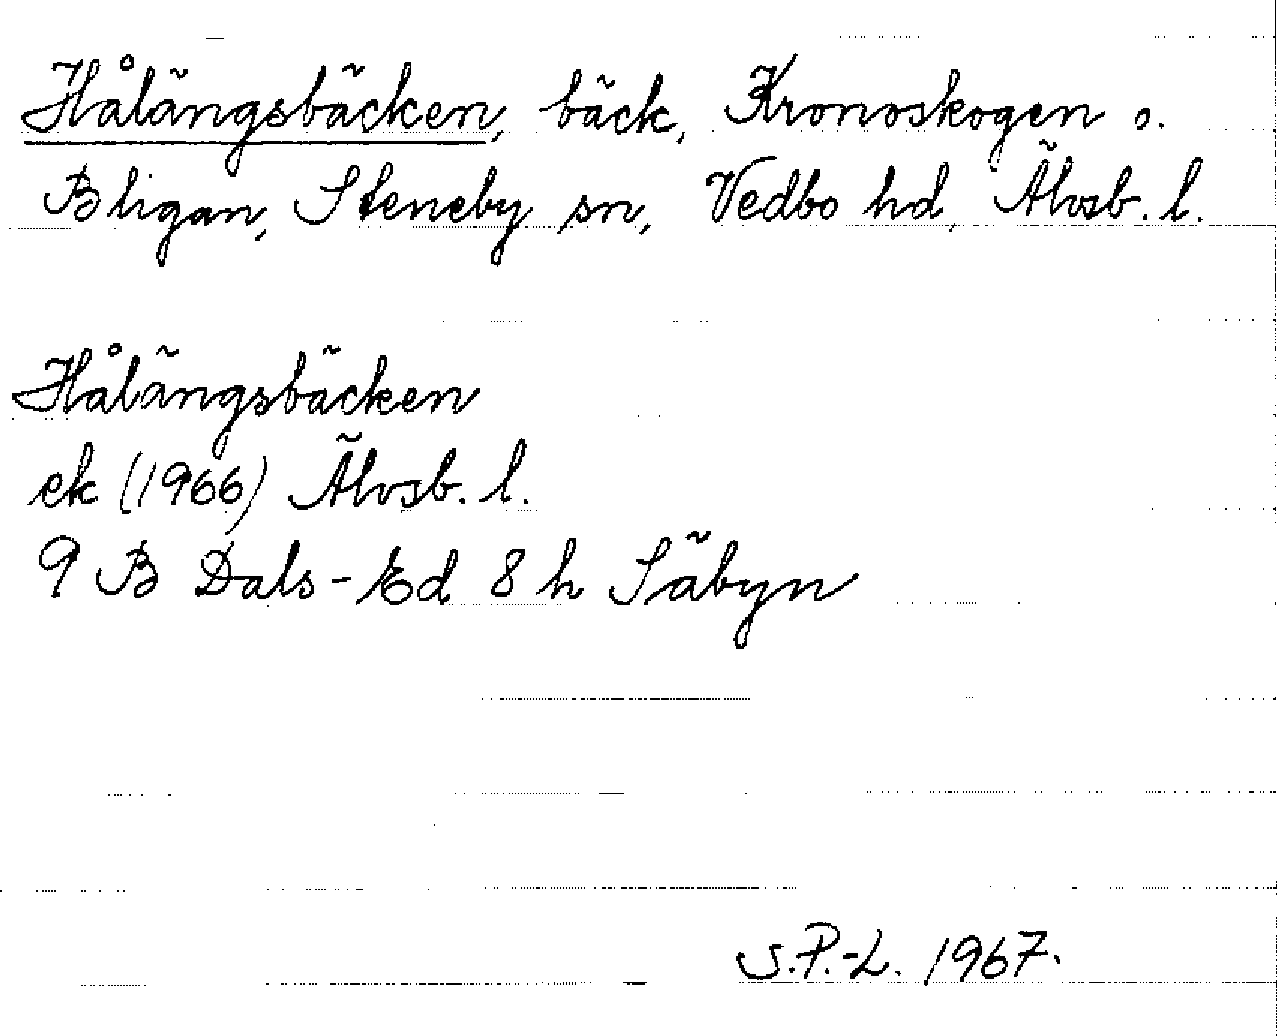 Hålängsbäcken, bäck, Kronoskogen o.
Bligan, Steneby sn, Vedbo hd, Älvsb. l.
Hålängsbäcken
ek (1966) Älvsb. l.
9 B Dals-Ed 8 h Säbyn
S.P.-L. 1967.